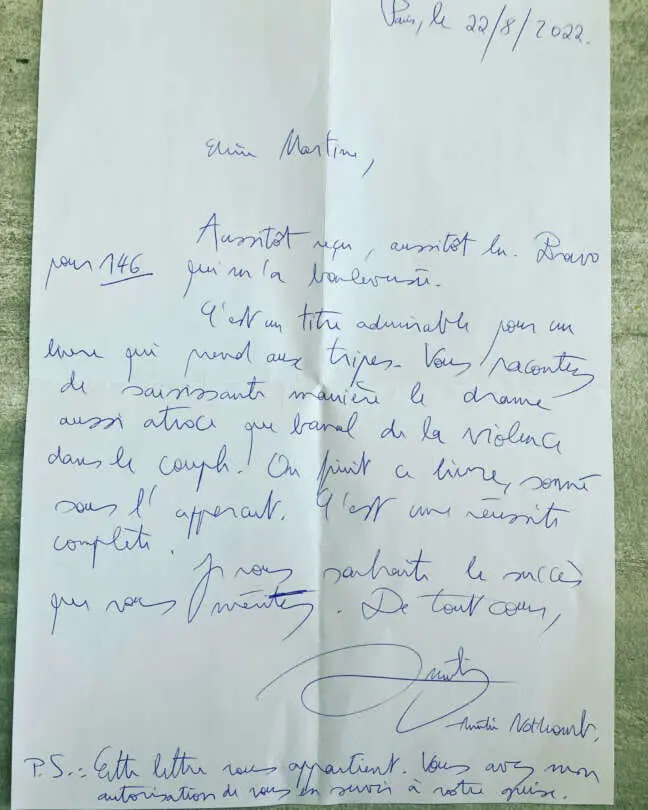 Paris, le 22/8/2022.
Chère Martine,
Aussitôt reçu, aussitôt lu. Bravo
pour 146 qui m'a bouleversée.
C'est un titre admirable pour un
livre qui prend aux tripes. Vous racontez
de saisissante manière le drame
aussi atroce que banal de la violence
dans le couple. On finit ce livre, sonné
sans l'
C'est une réussite
complète.
Je vous souhaite le succès
que vous méritez. De tout cœur,
Amélie
Amélie Nothomb.
P.S.: Cette lettre vous appartient. Vous avez mon
autorisation de vous en servir à votre guise.